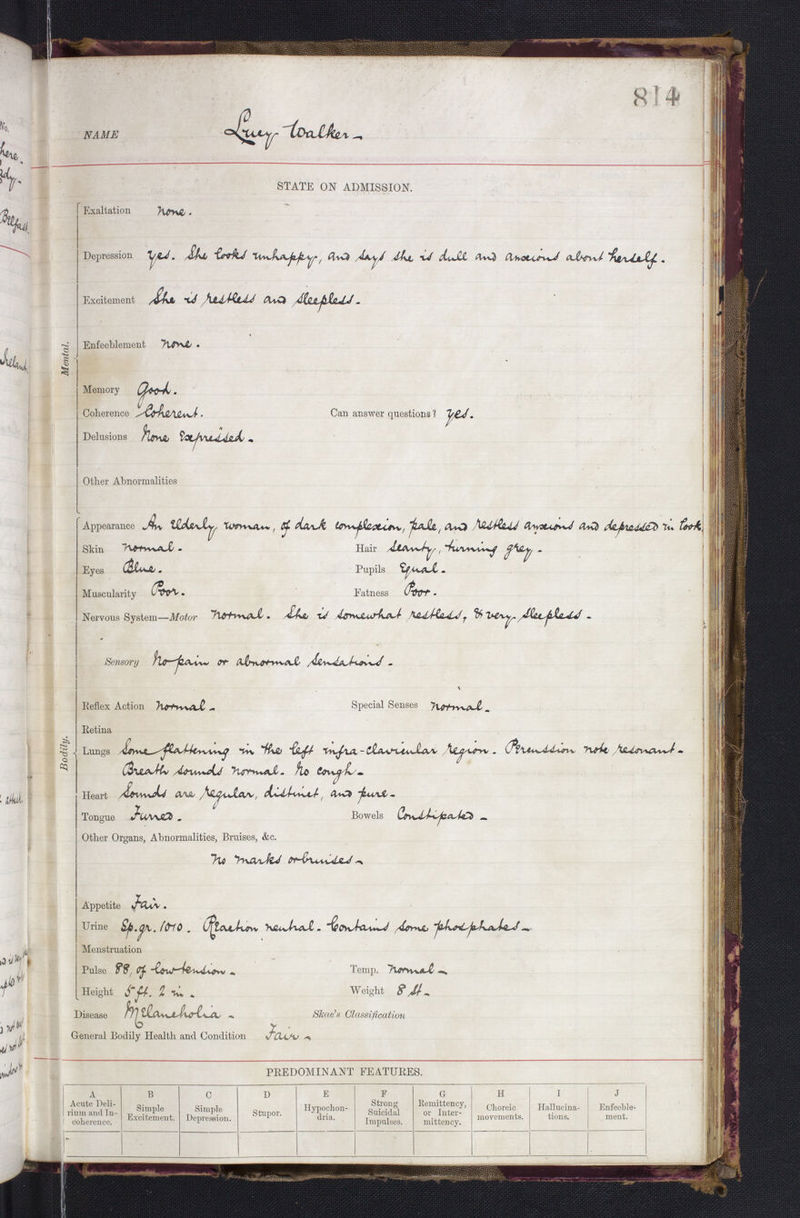 814
NAME Lucy Walker -
STATE ON ADMISSION.
Mental.
Exaltation None.
Depression Yes. She looks unhappy, and says she is dull and anxious about herself.
Excitement She is restless and sleepless -
Enfeeblement None.
Memory Good.
Coherence Coherent. Can answer questions? Yes.
Delusions None Expressed -
Other Abnormalities
Bodily.
Appearance An Elderly woman, of dark complexion, pale, and restless anxious and depressed in look
Skin Normal - Hair Scanty, turning grey -
Eyes Blue. Pupils Equal -
Muscularity Poor. Fatness Poor -
Nervous System—Motor Normal. She is somewhat restless, & very sleepless -
Sensory No pain or abnormal sensations -
Reflex Action Normal - Special Senses Normal -
Retina
Lungs Some flattening in the left infra-clavicular region. Percussion note resonant -
Breath sounds normal. No cough -
Heart Sounds are regular, distinct, and pure -
Tongue Furred. Bowels Constipated -
Other Organs, Abnormalities, Bruises, &c.
No marks or bruises -
Appetite Fair.
Urine Sp. gr. 1010. Reaction neutral - Contains some phosphates -
Menstruation
Pulse 88, of low tension - Temp. Normal -
Height 5 ft. 2 in. Weight 8 St -
Disease Melancholia - Skae's Classification
General Bodily Health and Condition Fair -
PREDOMINANT FEATURES.
A B C D E F G H I J
Acute Delirium and Incoherence. Simple Excitement. Simple Depression. Stupor. Hypochondria. Strong Suicidal Impulses. Remittency, or Intermittency. Choreic movements. Hallucinations. Enfeeblement.